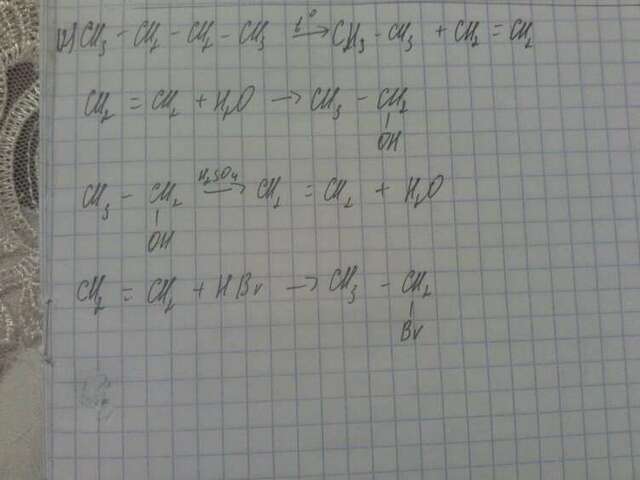 CH3 - CH2 - CH2 - CH3 t° → CH3 - CH3 + CH2 = CH2
CH2 = CH2 + H2O → CH3 - CH2
OH
CH3 - CH2 H2SO4 → CH2 = CH2 + H2O
OH
CH2 = CH2 + HBr → CH3 - CH2
Br